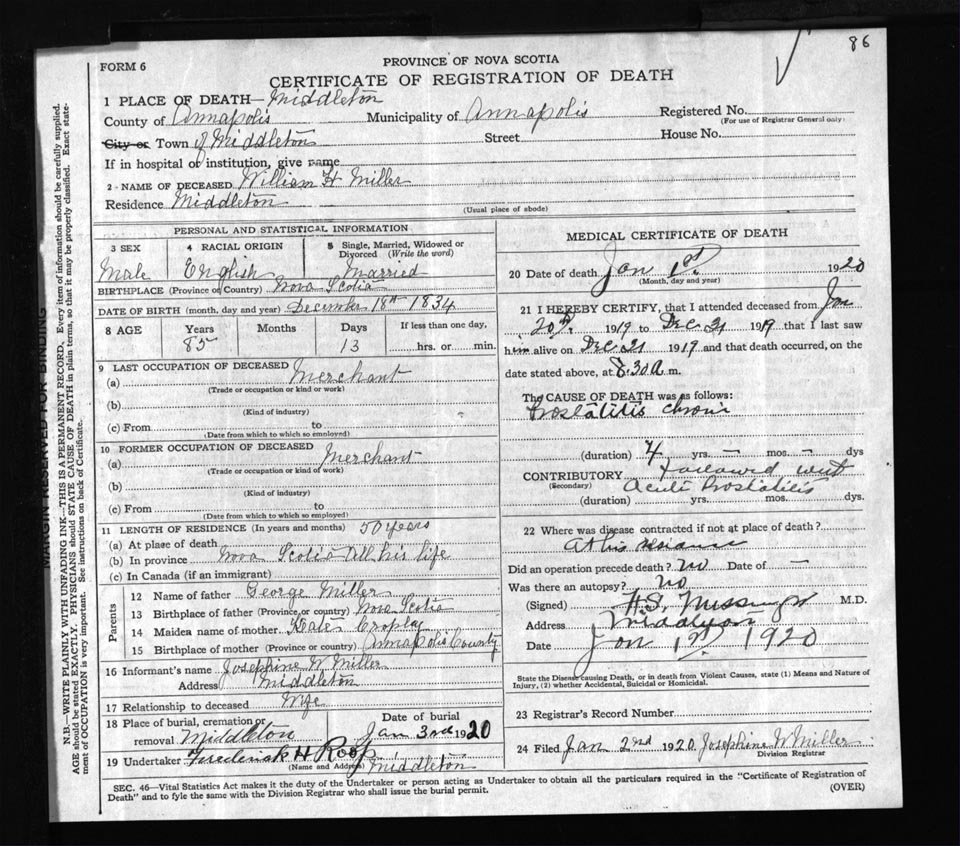 86
FORM 6
PROVINCE OF NOVA SCOTIA
CERTIFICATE OF REGISTRATION OF DEATH
1 PLACE OF DEATH—Middleton
County of Annapolis Municipality of Annapolis Registered No.
(For use of Registrar General only)
City or Town of Middleton Street House No.
If in hospital or institution, give name
2 - NAME OF DECEASED William H Miller
Residence Middleton
(Usual place of abode)
PERSONAL AND STATISTICAL INFORMATION
3 SEX 4 RACIAL ORIGIN 5 Single, Married, Widowed or Divorced (Write the word)
Male English Married
BIRTHPLACE (Province or Country) Nova Scotia
DATE OF BIRTH (month, day and year) December 18th 1834
8 AGE Years Months Days If less than one day,
85 13 hrs. or min.
9 LAST OCCUPATION OF DECEASED
(a) Merchant
(Trade or occupation or kind or work)
(b)
(Kind of industry)
(c) From to
(Date from which to which so employed)
10 FORMER OCCUPATION OF DECEASED
(a) Merchant
(Trade or occupation or kind of work)
(b)
(Kind of industry)
(c) From to
(Date from which so employed)
11 LENGTH OF RESIDENCE (In years and months) 50 years
(a) At place of death
(b) In province Nova Scotia All his life
(c) In Canada (if an immigrant)
Parents
12 Name of father George Miller
13 Birthplace of father (Province or country) Nova Scotia
14 Maiden name of mother Cropley
15 Birthplace of mother (Province or country) Annapolis County
16 Informant's name Josephine W Miller
Address Middleton
17 Relationship to deceased Wife
18 Place of burial, cremation or removal Middleton
Date of burial
Jan 3rd 1920
19 Undertaker Frederick H Roop Middleton
(Name and Address)
MEDICAL CERTIFICATE OF DEATH
20 Date of death Jan 1st 1920
(Month, day and year)
21 I HEREBY CERTIFY, that I attended deceased from Jan
20th 1919 to Dec. 31 1919 that I last saw
him alive on Dec. 31 1919 and that death occurred, on the
date stated above, at 8.30 a m.
The CAUSE OF DEATH was as follows:
Prostatitis chronic
(duration) 4 yrs. — mos. — dys
CONTRIBUTORY followed
(Secondary) Acute Prostatitis
(duration) yrs. mos. dys.
22 Where was disease contracted if not at place of death?
At his
Did an operation precede death? no Date of —
Was there an autopsy? no
(Signed) M.D.
Address Middleton
Date Jan 1st 1920
State the Disease causing Death, or in death from Violent Causes, state (1) Means and Nature of
Injury, (2) whether Accidental, Suicidal or Homicidal.
23 Registrar's Record Number
24 Filed Jan 2nd 1920 Josephine W Miller
Division Registrar
SEC. 46—Vital Statistics Act makes it the duty of the Undertaker or person acting as Undertaker to obtain all the particulars required in the "Certificate of Registration of
Death" and to fyle the same with the Division Registrar who shall issue the burial permit. (OVER)
MARGIN RESERVED FOR BINDING
N.B.—WRITE PLAINLY WITH UNFADING INK—THIS IS A PERMANENT RECORD. Every item of information should be carefully supplied.
AGE should be stated EXACTLY. PHYSICIANS should STATE CAUSE OF DEATH in plain terms, so that it may be properly classified. Exact state-
ment of OCCUPATION is very important. See instructions on back of Certificate.